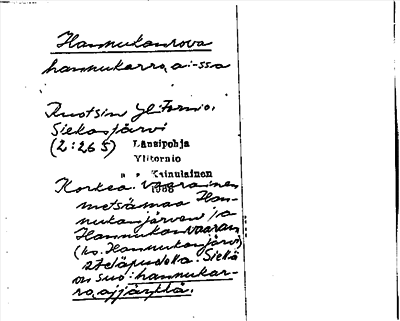 Hannukanrova
hannukarro, a:-ssa
Ruotsin Ylitornio,
Siekasjärvi
(2:265)
Länsipohja
Ylitornio
Kainulainen
1966
Korkea vaarainen
metsämaa Han-
nukanjärven ja
Hannukanvaaran
(ks. Hannukanjärvi)
eteläpuolella. Siellä
on suo: hannukar-